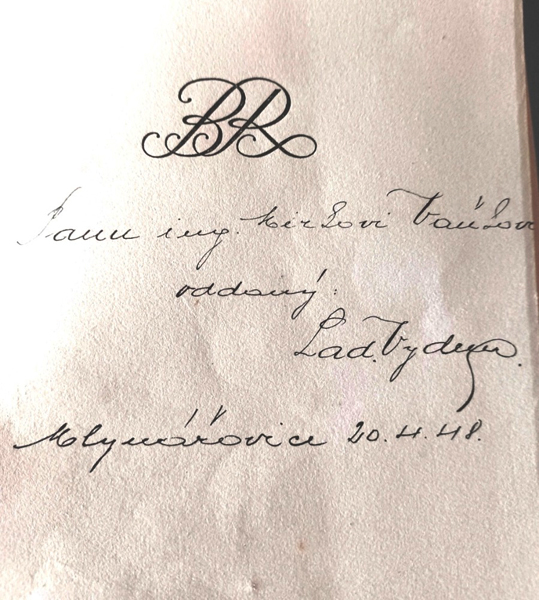 BR
Panu ing. Mirkovi
oddaný:
Lad. Vydra.
Mlynářovice 20.4.48.